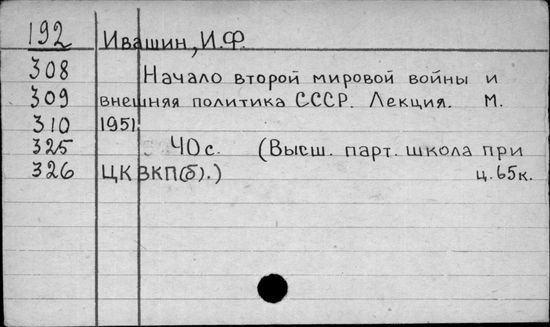 192 Ивашин, И.Ф.
308 Начало второй мировой войны и
309 внешняя политика СССР. Лекция. М.
310 1951.
325 40 с. (Высш. парт. школа при
326 ЦК ВКП(б).) ц. 65к.